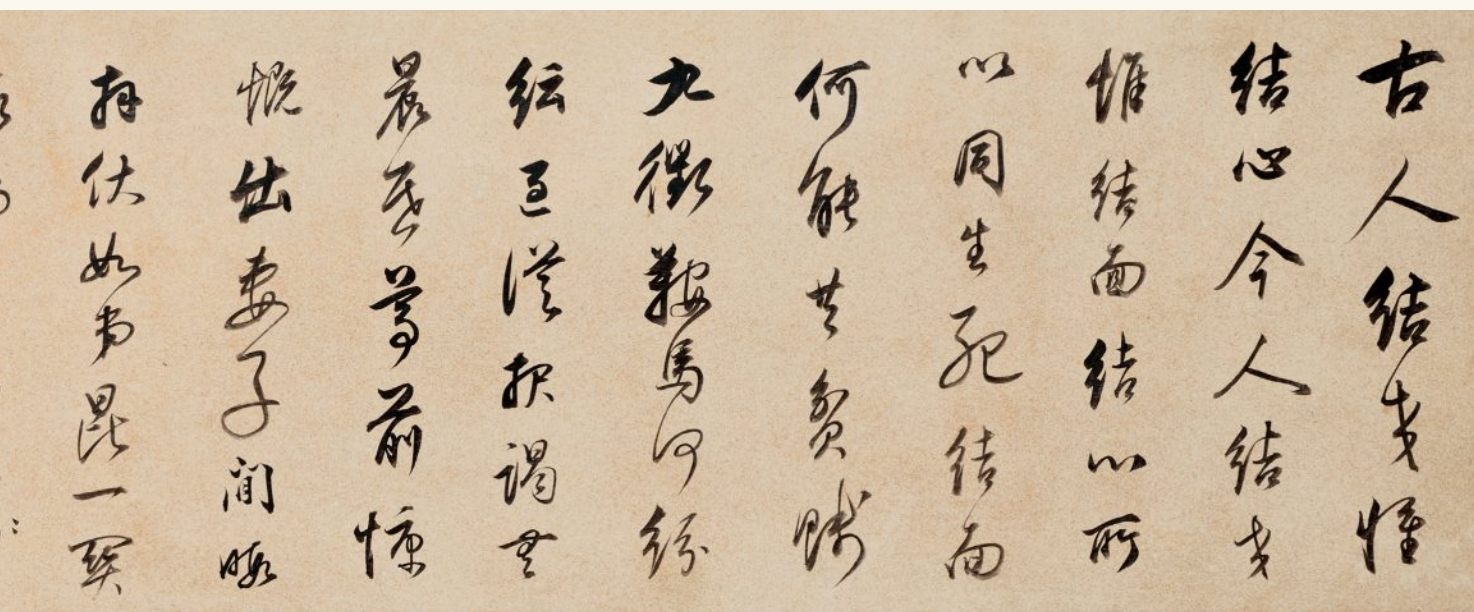 古人結交惟
結心今人結交
惟結面結心所
以同生死結面
何能共貧賤
九衢鞍馬何紛
紜追從投謁無
晨昏尊前慷
慨出妻子間暇
拜伏如弟昆一關